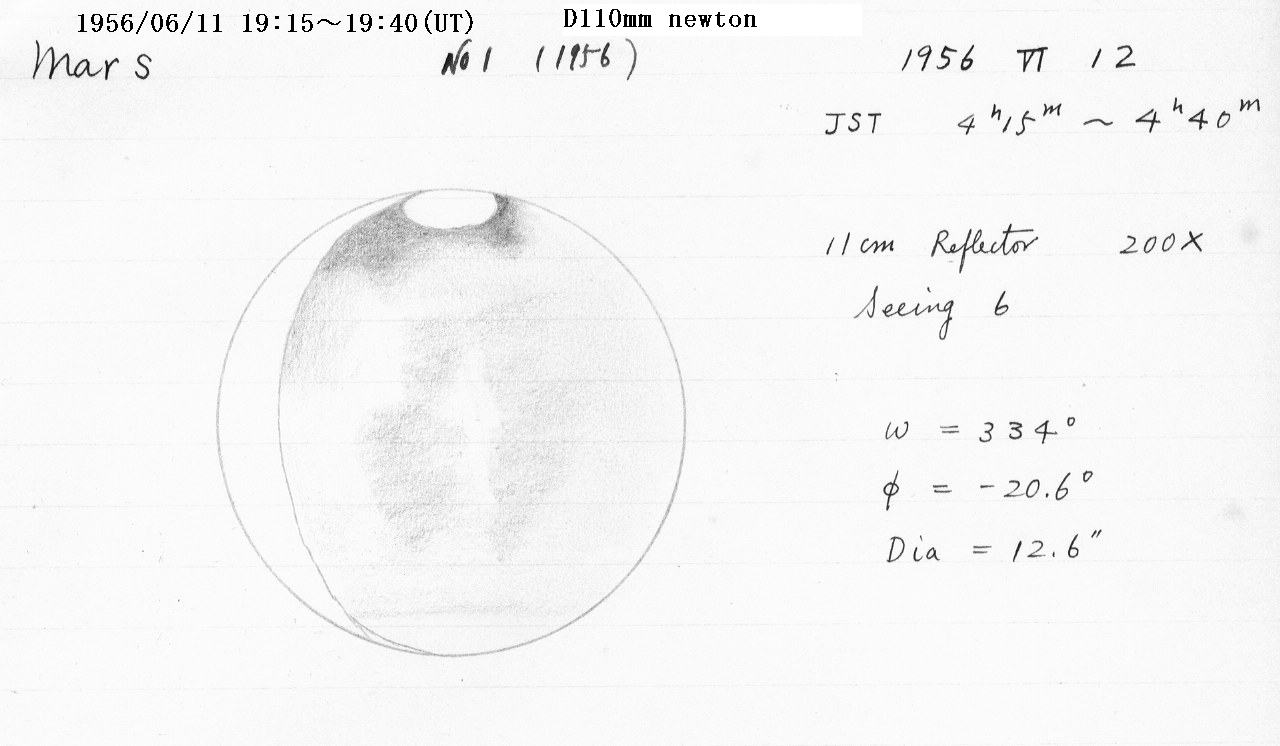 1956/06/11 19:15～19:40(UT) D110mm newton
Mars No 1 (1956) 1956 VI 12
JST 4h15m ~ 4h40m
11cm Reflector 200X
Seeing 6
ω = 334°
φ = -20.6°
Dia = 12.6"